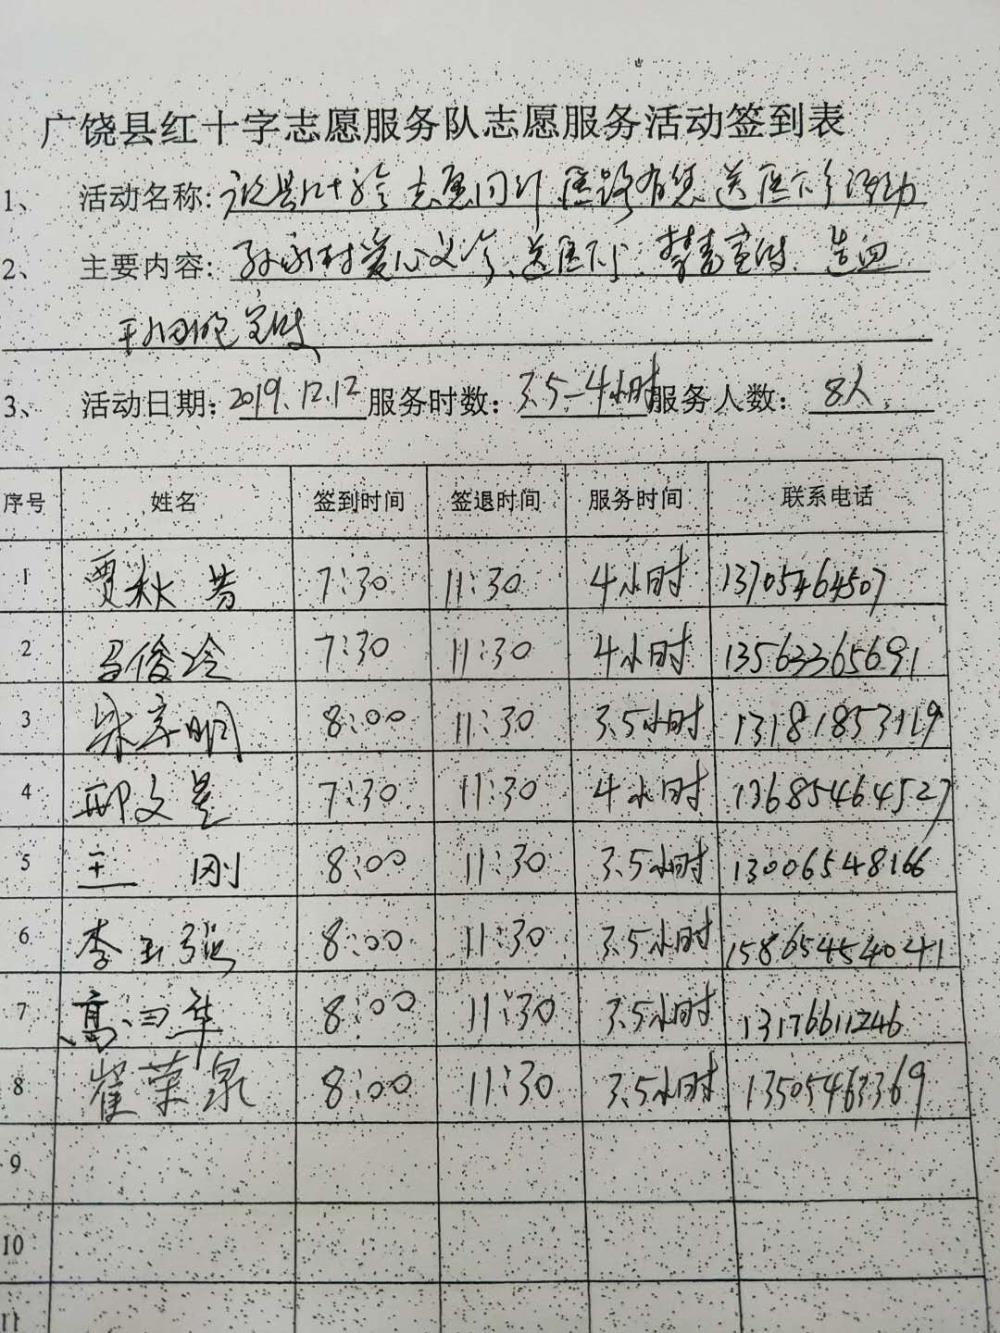 广饶县红十字志愿服务队志愿服务活动签到表
1、 活动名称: 志愿同行 医路有您 送医下乡活动
2、 主要内容: 村爱心义诊、送医下乡、禁毒宣传、造血
干细胞宣传
3、 活动日期: 2019.12.12 服务时数: 3.5-4小时 服务人数: 8人
序号 姓名 签到时间 签退时间 服务时间 联系电话
1 贾秋芳 7:30 11:30 4小时 13705464507
2 俊玲 7:30 11:30 4小时 13563365691
3 8:00 11:30 3.5小时 13181853119
4 邢文 7:30 11:30 4小时 13685464527
5 王刚 8:00 11:30 3.5小时 13006548166
6 李玉强 8:00 11:30 3.5小时 15865454041
7 高 华 8:00 11:30 3.5小时 13176611246
8 崔荣泉 8:00 11:30 3.5小时 13505463369
9
10
11